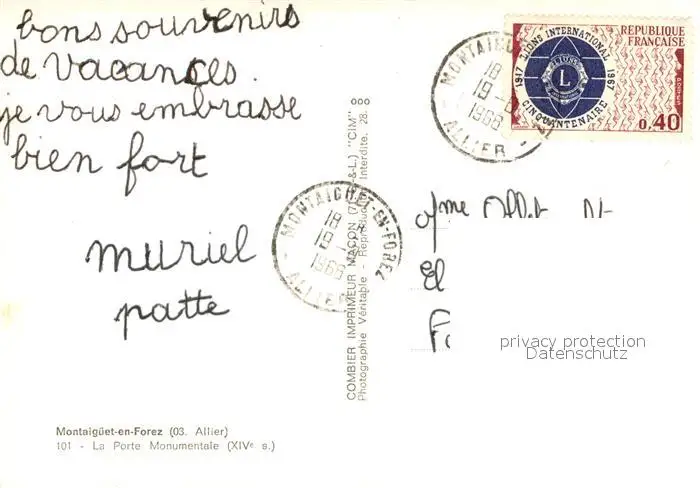 bons souvenirs
de vacances.
je vous embrasse
bien fort
muriel
patte
Montaigüet-en-Forez (03. Allier)
101 - La Porte Monumentale (XIVe s.)
COMBIER IMPRIMEUR MACON "CIM"
Photographie Véritable - Reproduction Interdite. 28.
MONTAIGUET-EN-FOREZ
18 H
19 -8
1968
ALLIER
MONTAIGU
18
19 -8
1968
ALLIER
REPUBLIQUE
FRANÇAISE
LIONS INTERNATIONAL
1917
1967
LIONS
L
CINQUANTENAIRE
0,40
Mme
privacy protection
Datenschutz